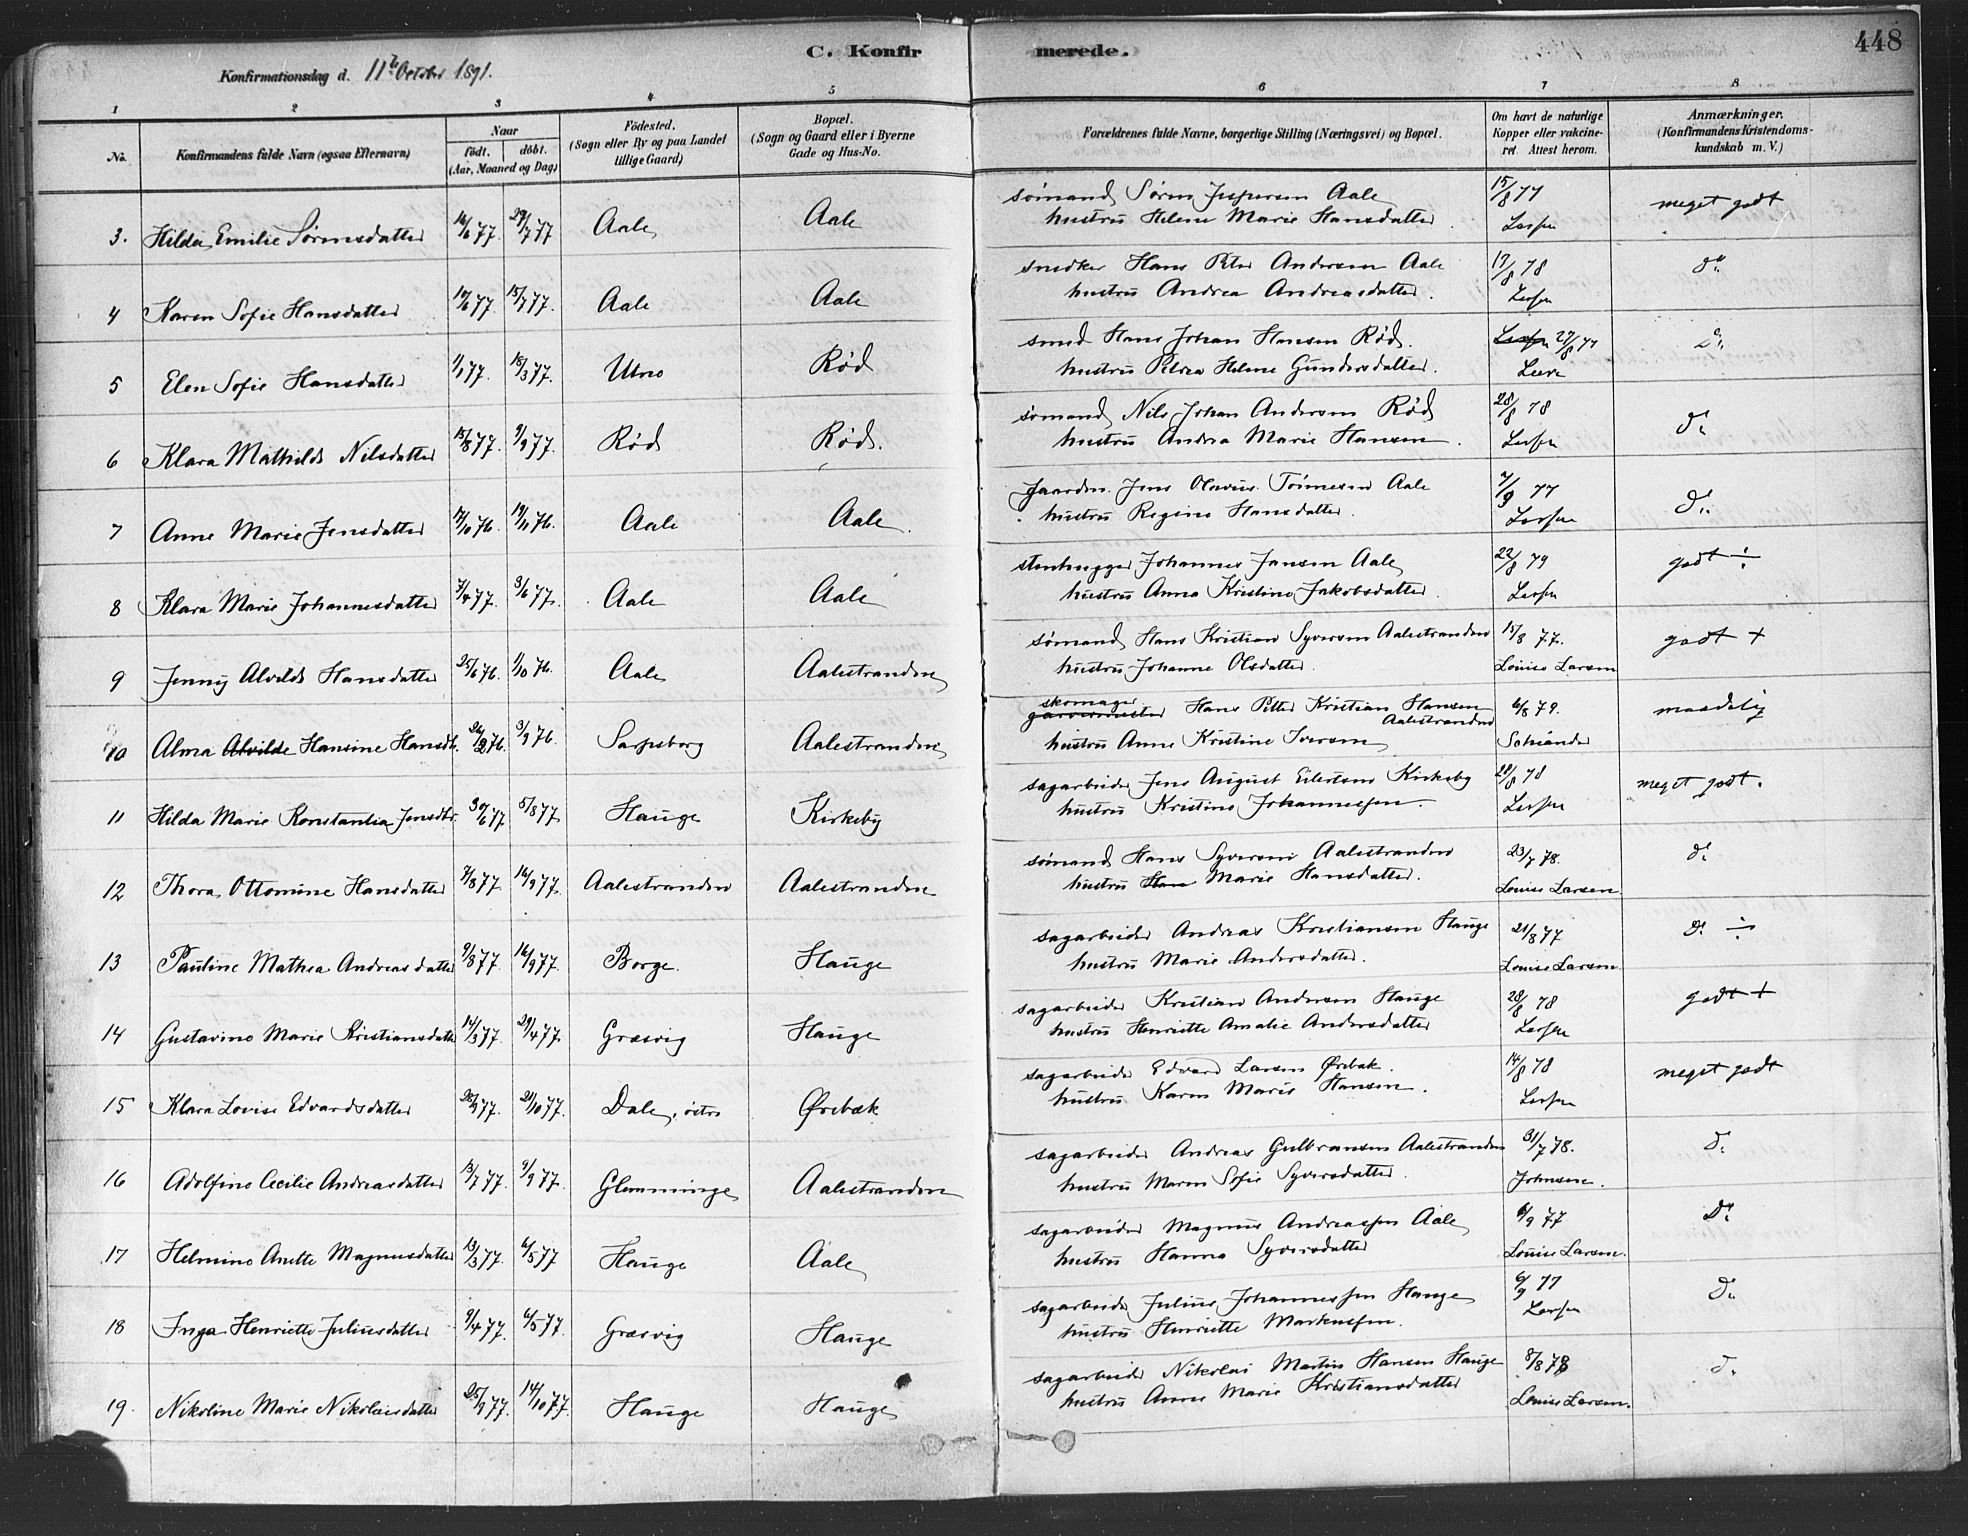 C. Konfirmerede.
448
Konfirmationsdag d. 11te October 1891.
1 2 3 4 5 6 7 8
No.
Konfirmandens fulde Navn (ogsaa Efternavn)
Naar
født. døbt.
(Aar, Maaned og Dag)
Fødested.
(Sogn eller By og paa Landet
tillige Gaard)
Bopæl.
(Sogn og Gaard eller i Byerne
Gade og Hus-No.
Forældrenes fulde Navne, borgerlige Stilling (Næringsvei) og Bopæl.
Om havt de naturlige
Kopper eller vakcine-
ret. Attest herom.
Anmærkninger.
(Konfirmandens Kristendoms-
kundskab m. V.)
3. Hilda Emilie Sørensdatter 16/6 77. 29/7 77 Aale Aale sømand Søren Jespersen Aale 15/8 77 meget godt
hustru Helene Marie Hansdatter.
4 Karen Sofie Hansdatter 15/7 77. Aale Aale snedker Hans Peter Andersen Aale 17/8 78 do
hustru Andrea Andreasdatter.
5 Elen Sofie Hansdatter 1/1 77. 18/3 77. Utne Rød smed Hans Johan Hansen Rød. 27/8 77 do
hustru Petrea Helene Gundersdatter.
6 Klara Mathilde Nilsdatter 15/8 77. 9/9 77. Rød Rød. sømand Nils Johan Andersen Rød 28/8 78 do
hustru Andrea Marie Hansen.
7 Anne Marie Jensdatter 17/10 76. 19/11 76. Aale Aale. gaardm. Jens Olavus Tønnesen Aale 7/9 77 do
hustru Regine Hansdatter.
8 Klara Marie Johannesdatter 7/4 77. 3/6 77. Aale Aale stenhugger Johannes Jansen Aale 22/8 79 godt ÷
hustru Anna Kristine Jakobsdatter.
9 Jenny Alvilde Hansdatter 25/6 76. 1/10 76. Aale Aalestranden sømand Hans Kristian Syversen Aalestranden 15/8 77. godt +
hustru Johanne Olsdatter. Louise Larsen
10 Alma Alvilde Hansine Hansdt. 3/9 76. Sarpsborg Aalestranden skomager garvermester Hans Petter Kristian Hansen Aalestranden 6/8 79. maadelig
hustru Anne Kristine Iversen
11 Hilda Marie Konstantia Jensdtr. 30/6 77 5/8 77 Hauge Kirkeby sagarbeider Jens August Eilertsen Kirkeby 28/8 78 meget godt.
hustru Kristine Johannessen.
12 Thora Ottomine Hansdatter 7/8 77 16/9 77. Aalestranden Aalestranden sømand Hans Syversen Aalestranden 23/7 78. do
hustru Han Marie Hansdatter. Louise Larsen
13 Pauline Mathea Andreasdatter 9/8 77. 16/9 77. Borge. Hauge sagarbeider Andreas Kristiansen Hauge 21/8 77 do ÷
hustru Marie Andersdatter. Louise Larsen
14 Gustavine Marie Kristiansdatter 14/3 77. 29/4 77. Græsvig Hauge sagarbeider Kristian Andersen Hauge 28/8 78 godt +
hustru Henriette Amalie Andersdatter
15 Klara Lovise Edvardsdatter 21/10 77. Dale, østre Ørebæk sagarbeider Edvard Larsen Ørebæk. 14/8 78 meget godt
hustru Karen Marie Hansen.
16 Adolfine Cecilie Andreasdatter 13/7 77. 9/9 77. Glemminge Aalestranden sagarbeider Andreas Gulbransen Aalestranden 31/7 78. do
hustru Maren Sofie Syversdatter. Johnsen.
17 Helmine Anette Magnusdatter 13/3 77. 6/5 77 Hauge Aale sagarbeider Magnus Andreassen Aale 6/9 77 do
hustru Hanna Syversdatter Louise Larsen.
18 Inga Henriette Juliusdatter 9/4 77. 6/5 77. Græsvig Hauge sagarbeider Julius Johannessen Hauge 6/9 77 do
hustru Henriette Markussen.
19. Nikoline Marie Nikolaisdatter 25/9 77. 14/10 77. Hauge Hauge sagarbeider Nikolai Martin Hansen Hauge 8/8 78 do
hustru Anne Marie Kristiansdatter Louise Larsen.